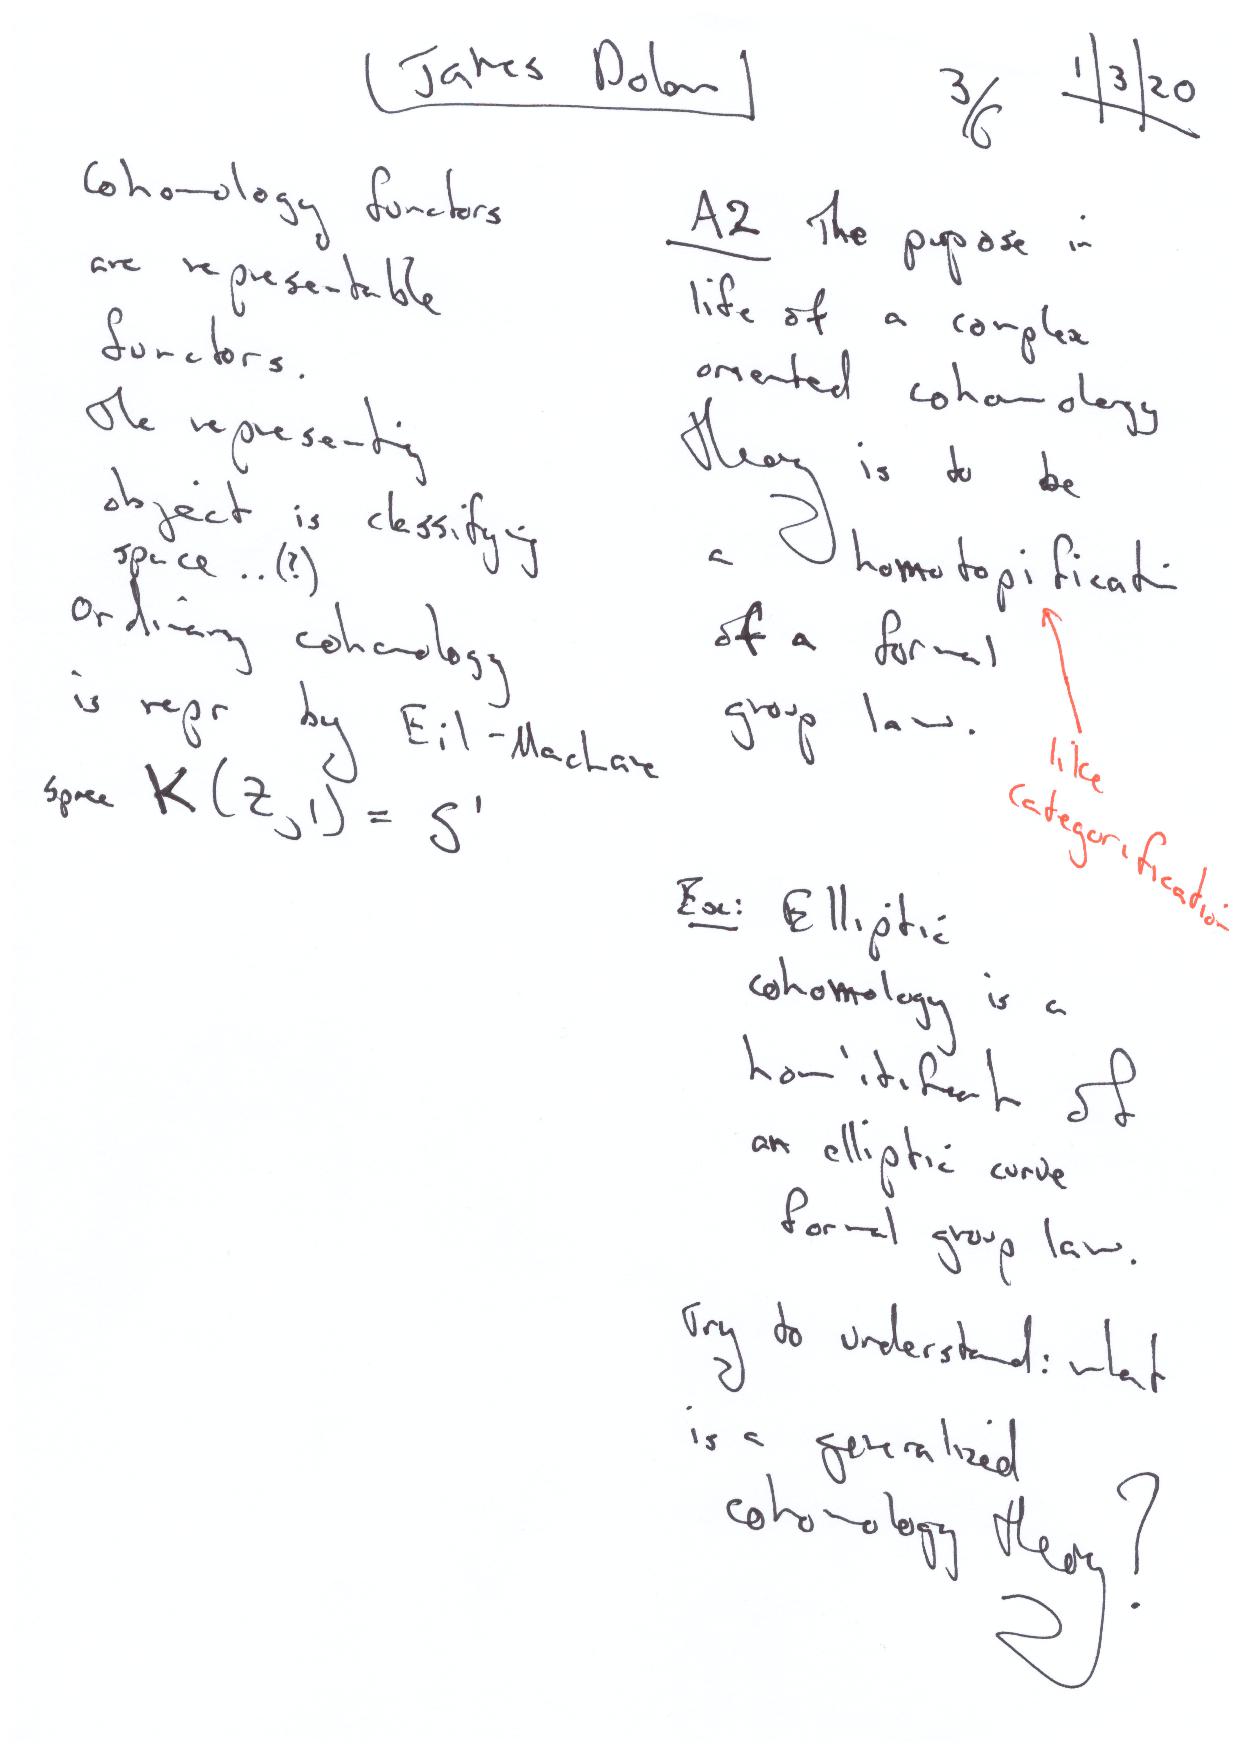 James Dolan
3/6
1/3/20
Cohomology functors
are representable
functors.
The representing
object is classifying
space ..(?)
Ordinary cohomology
is repr by Eil-MacLane
space K(Z,1) = S¹
A2 The pupose in
life of a complex
oriented cohomology
theory is to be
a homotopification
of a formal
group law.
like
categorification
Ex: Elliptic
cohomology is a
of
an elliptic curve
formal group law.
Try to understand: what
is a generalized
cohomology theory?